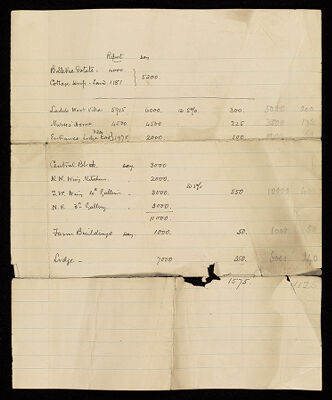 Report say
Bellevue Estate - 4000
Cottage Hosp - Land 1181 } 5200
Ladies West Villa 5925 6000. @ 5% 300. 5000 200
Nurses Home 4500 4500 225
Entrance Lodge 1975 2000. 100.
Central Block say 3000
N.W. Wing Kitchen 2000.
S.W. Wing Gallery - 3000. @ 5% 550 10000
N.E. Gallery 3000.
11000.
Farm Buildings say 1000. 50. 1000 50
Lodge - 7000 350. 6000 240
1575. 1525